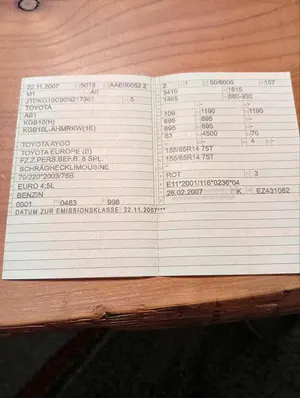 22.11.2007 5013 AAE00052 2
M1 AB
5
TOYOTA
AB1
KGB10(H)
KGB10L-AHMRKW(1E)
-
TOYOTA AYGO
TOYOTA EUROPE (B)
FZ.Z.PERS.BEF.B. 8 SPL.
SCHRÄGHECKLIMOUSINE
70/220*2003/76B
EURO 4;5L
BENZIN
0001 0463 998
DATUM ZUR EMISSIONSKLASSE: 22.11.2007***
2 1 50/6000 157
3410 1615
1465
109 1190 1190
695 695
695 695
83 4500 70
- 4 -
155/65R14 75T
155/65R14 75T
-
ROT 3
E11*2001/116*0236*04
26.02.2007 K EZ431082